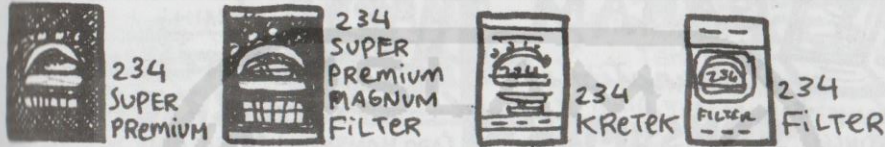 234
SUPER
PREMIUM
234
SUPER
PREMIUM
MAGNUM
FILTER
234
234
KRETEK
234
FILTER
234
FILTER